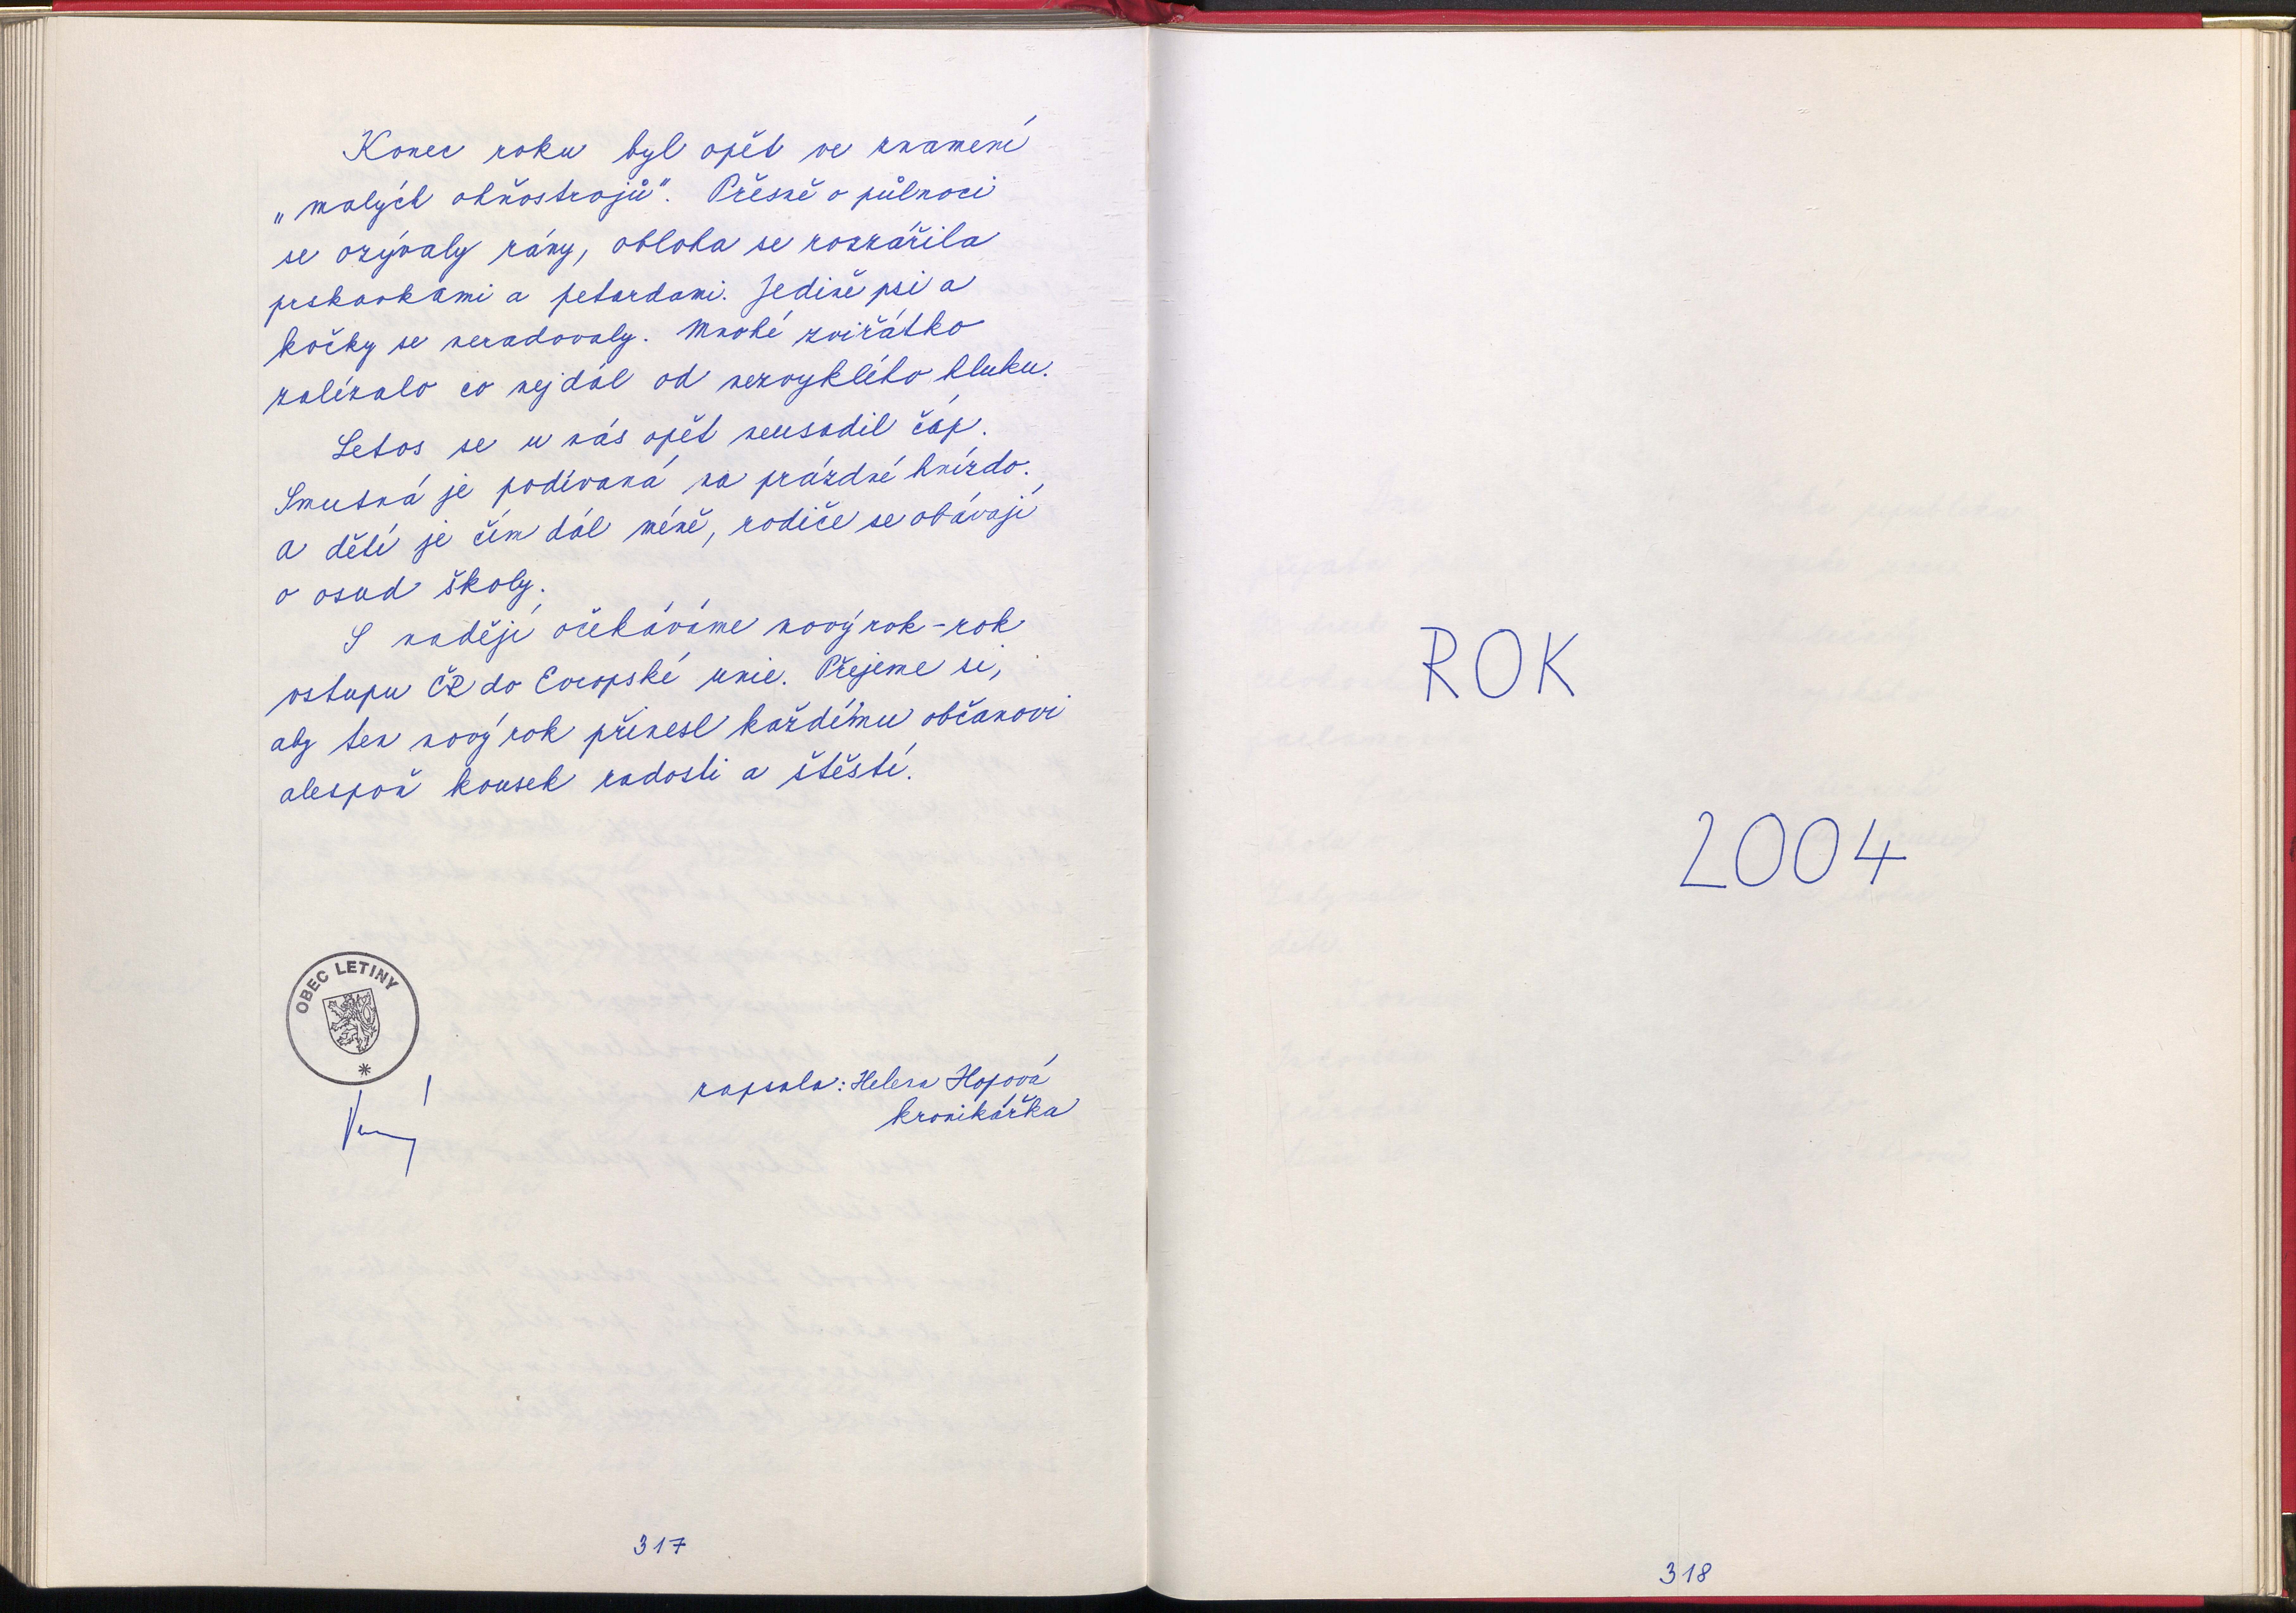 Konec roku byl opět ve znamení
„malých ohňostrojů". Přesně o půlnoci
se ozývaly rány, obloha se rozzářila
prskavkami a petardami. Jedině psi a
kočky se neradovaly. Mnohé zvířátko
zalézalo co nejdál od nezvyklého hluku.
Letos se u nás opět neusadil čáp.
Smutná je podívaná na prázdné hnízdo.
A dětí je čím dál méně, rodiče se obávají
o osud školy.
S nadějí očekáváme nový rok - rok
vstupu ČR do Evropské unie. Přejeme si,
aby ten nový rok přinesl každému občanovi
alespoň kousek radosti a štěstí.
OBEC LETINY
zapsala: Helena Hofová
kronikářka
317
ROK
2004
318